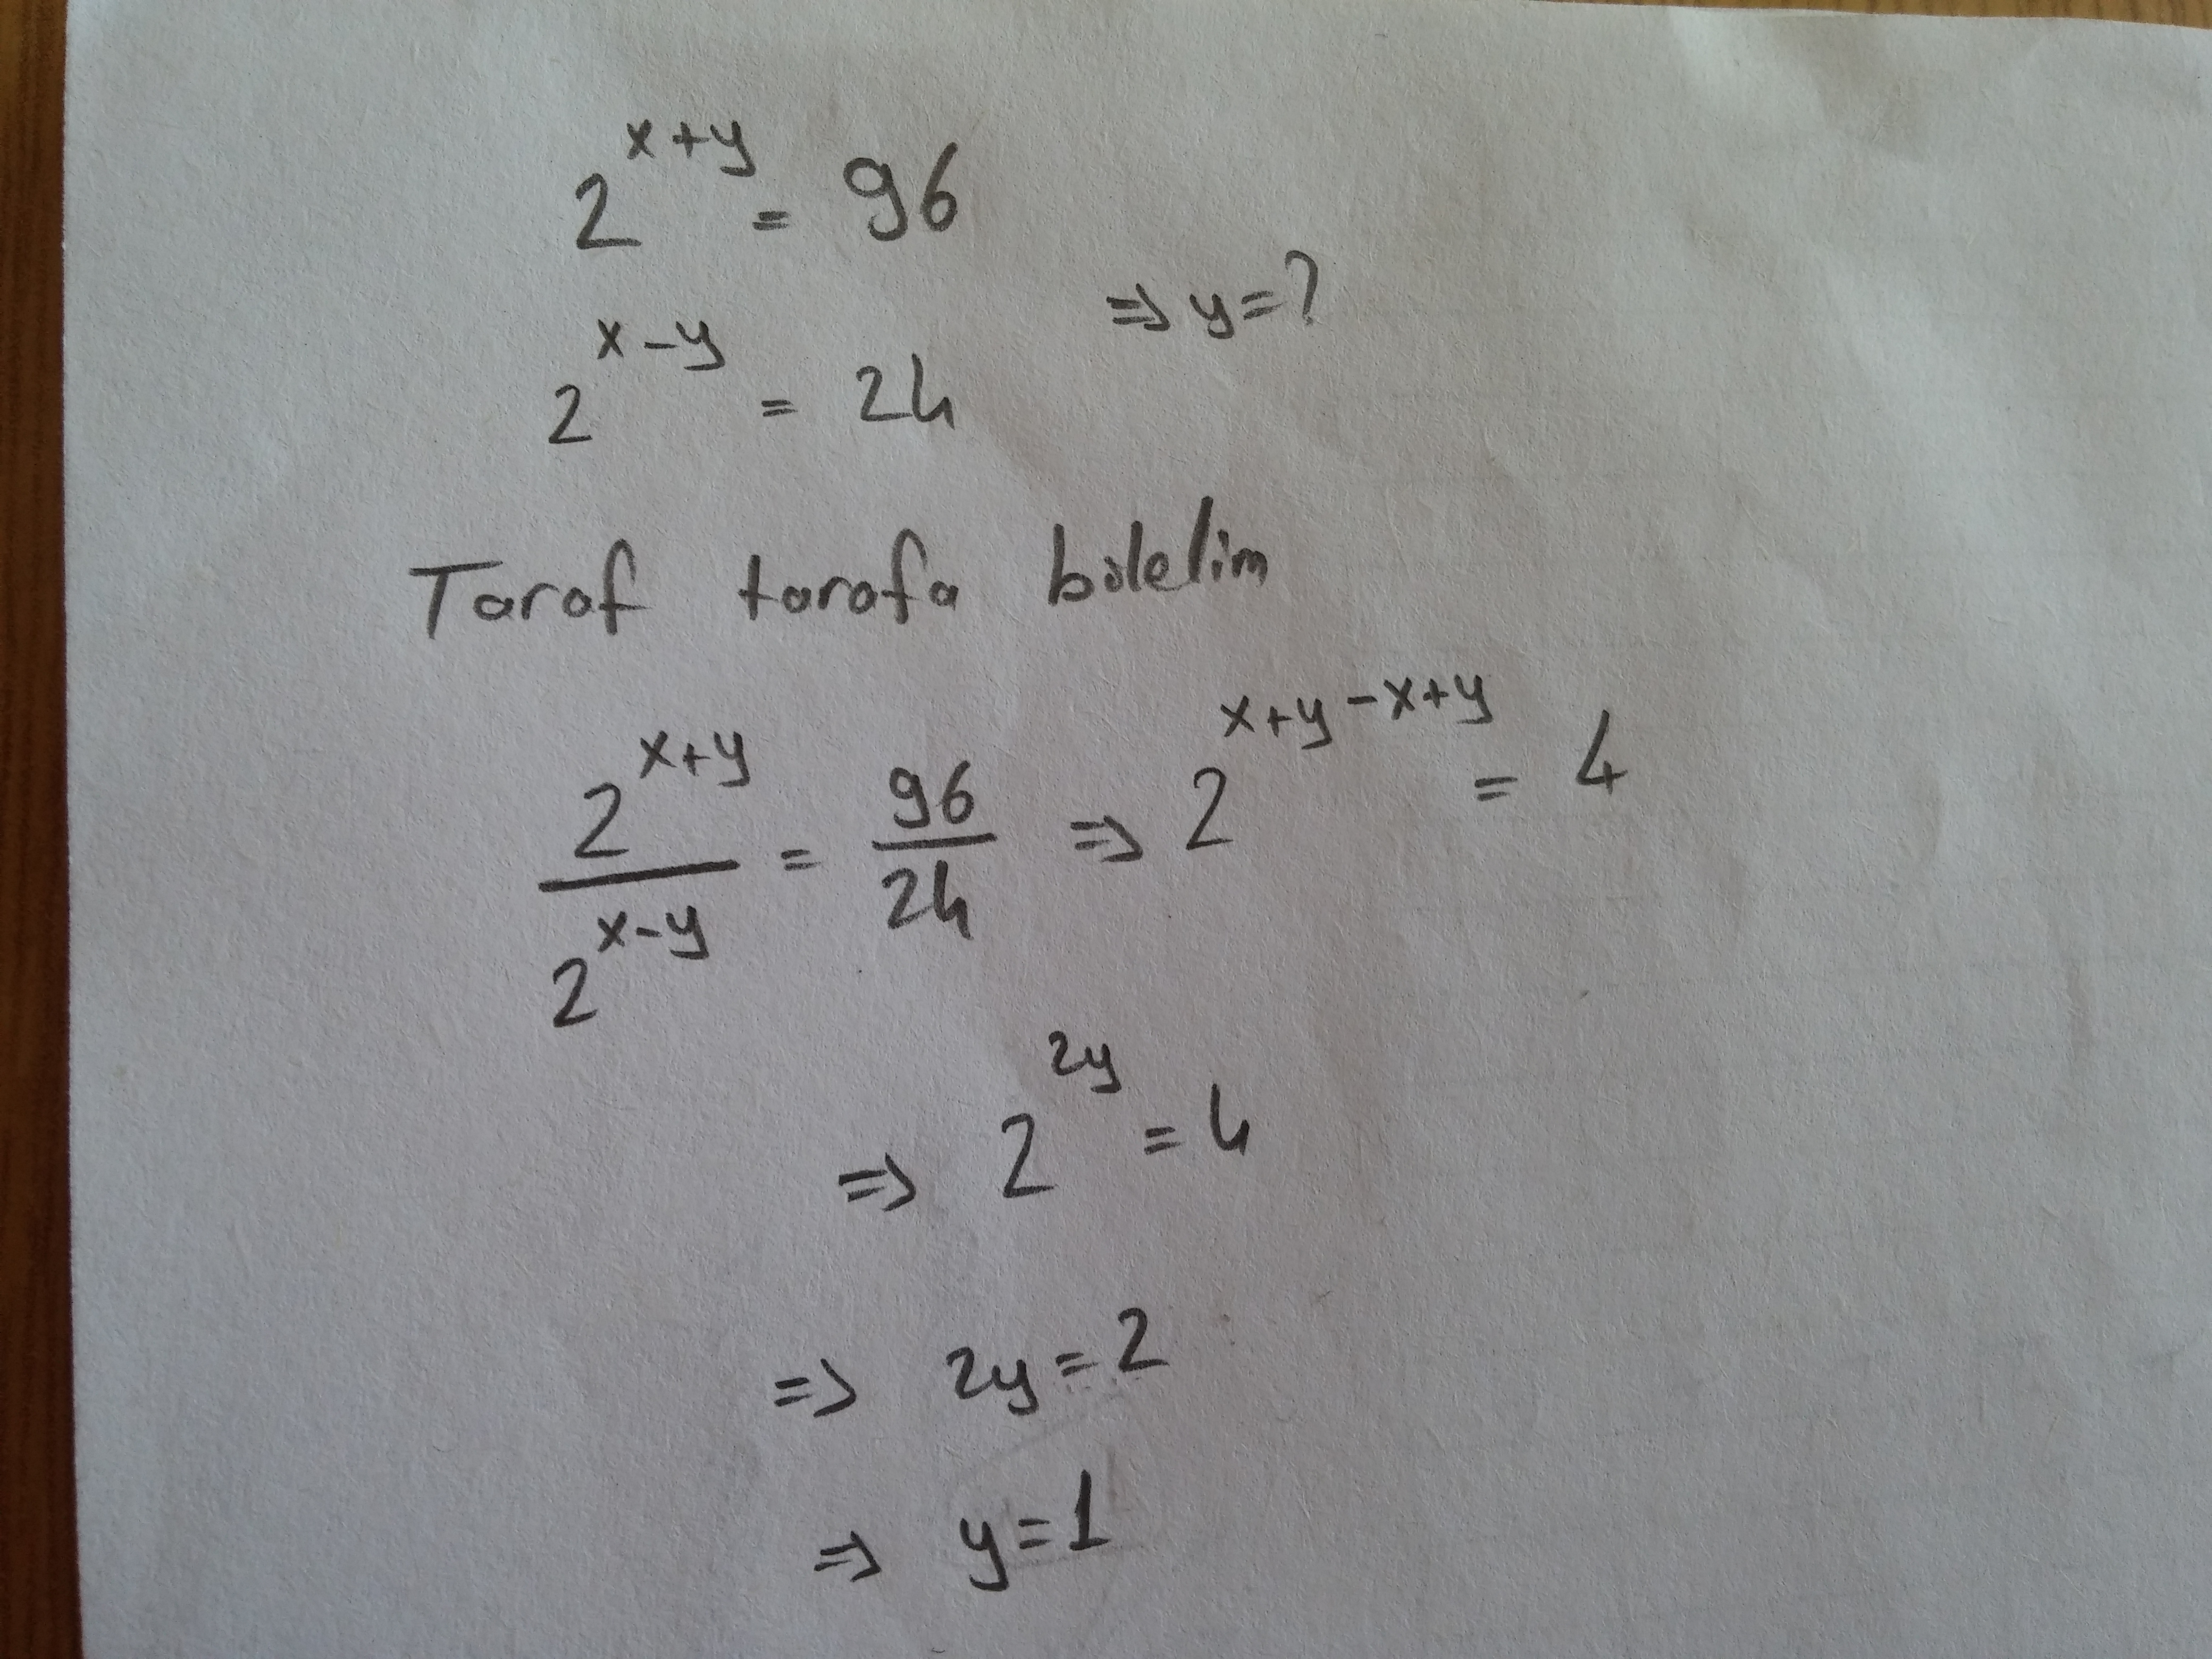 2^(x+y) = 96
⇒ y=?
2^(x-y) = 24
Taraf tarafa bölelim
2^(x+y) / 2^(x-y) = 96/24 ⇒ 2^(x+y-x+y) = 4
⇒ 2^(2y) = 4
⇒ 2y=2
⇒ y=1